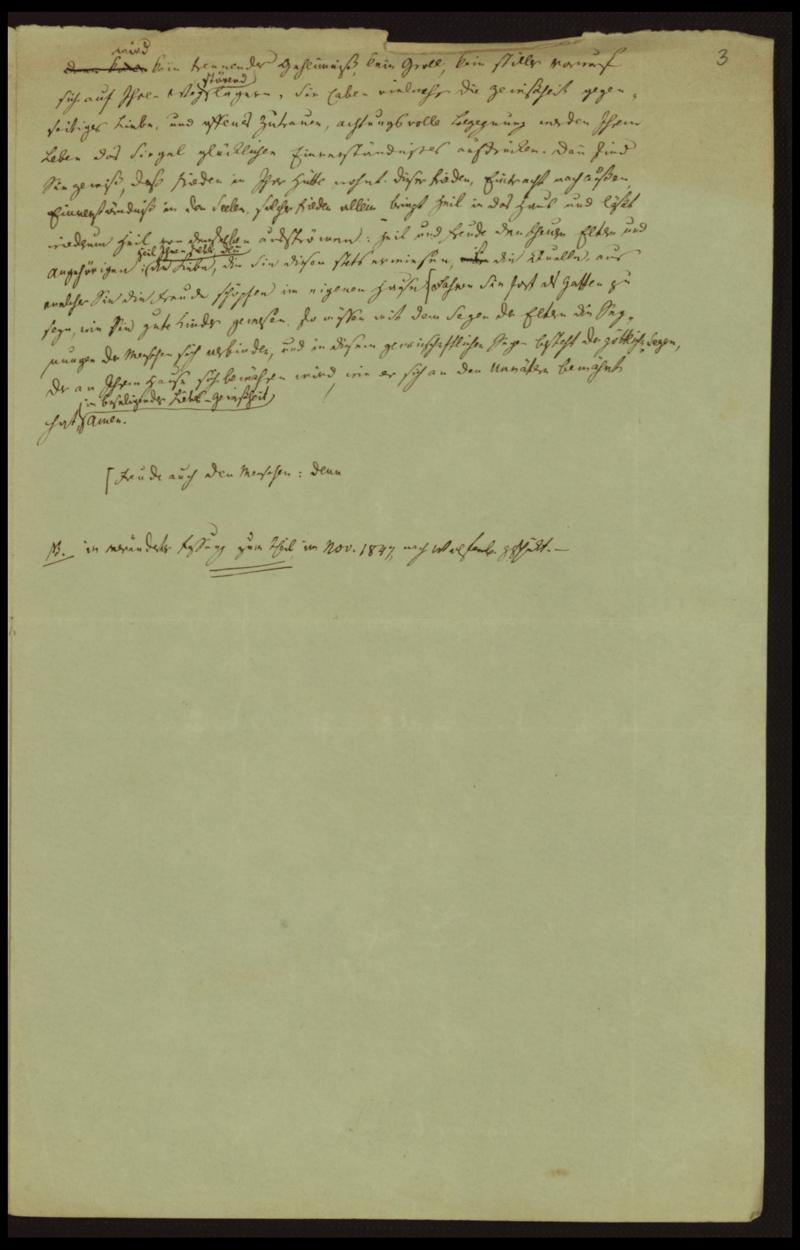 3
wird
kein trennendes Geheimniß, kein Groll, kein stiller Vorwurf
störend
sich auf Ihren Weg lagern, Sie haben vielmehr die Gewißheit gegen-
seitiger Liebe, und offenes Zutrauen, achtungsvolle Begegnung werden Ihrem
Leben das Siegel glücklichen Einverständnisses aufdrücken. Dann sind
Sie gewiß, daß Frieden in Ihrer Hütte wohnt. Dieser Frieden, Eintracht nach außen
Einverständniß in den Seelen, solcher Frieden allein bringt Heil in das Haus und läßt
wiederum Heil von demselben ausströmen: Heil und Freude den theuren Eltern und
Angehörigen die Liebe, die Sie diesen stets erwiesen, die Quelle, aus
welcher Sie die Freude schöpfen im eigenen Hause [Fahren Sie fort als Gatten zu
seyn, wie Sie gute Kinder gewesen, so müssen mit dem Segen der Eltern die Seg-
nungen der Menschen sich verbinden, und in diesem gemeinschaftlichen Segen besteht der göttliche Segen,
der an Ihrem Hause sich bewähren wird, wie er sich an den Urvätern bewährt
in beseligender Liebes-Gewißheit
hat Amen.
[Freude auch den Menschen: denn
NB. in veränderter Fassung zum Theil im Nov. 1847, nach